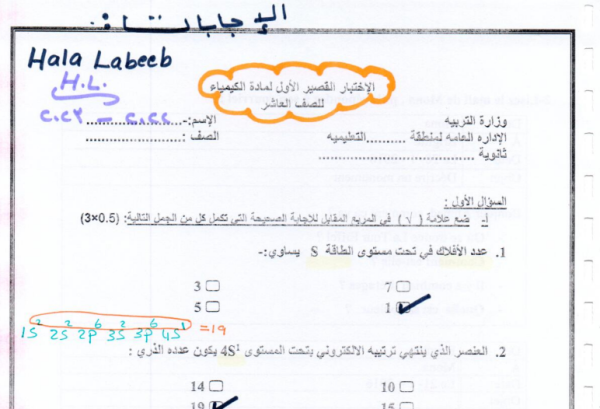 الإجابات
Hala Labeeb
H.L.
٢٠٢٢ – ٢٠٢٣
الإختبار القصير الأول لمادة الكيمياء
للصف العاشر
وزارة التربيه
الإسم:-......................
الإداره العامه لمنطقة ..........التعليميه
الصف :......................
ثانوية ......................................
السؤال الأول :
أ- ضع علامة ( √ ) في المربع المقابل للإجابة الصحيحة التي تكمل كل من الجمل التالية: (0.5×3)
1. عدد الأفلاك في تحت مستوى الطاقة S يساوي:-
7 3
1 5
1S² 2S² 2P⁶ 3S² 3P⁶ 4S¹ =19
2. العنصر الذي ينتهي ترتيبه الالكتروني بتحت المستوى 4S¹ يكون عدده الذري :
10 14
15 19